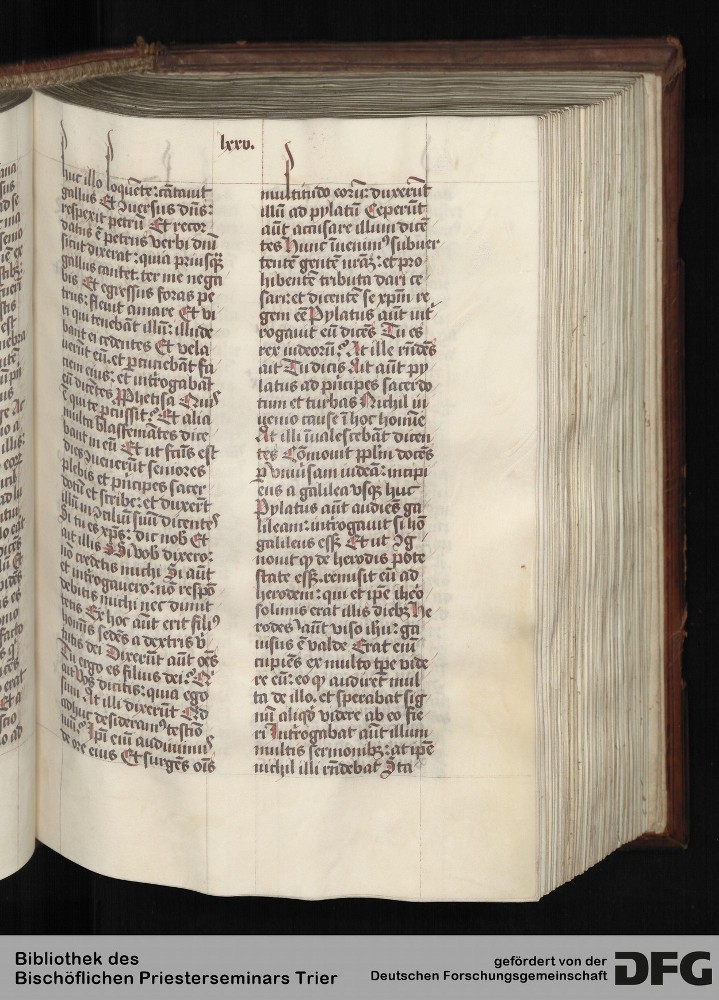 lxxv.
huc illo loquēte: cātavit
gallus Et ꝯversus dn̄s:
respexit petrū Et recor
datus ē petrus verbi dn̄i
sicut dixerat: quia priusqͣ
gallus cantet. ter me nega
bis Et egressus foras pe
trus: flevit amare Et vi
ri qui tenebāt illū: illude
bant ei cedentes Et vela
verūt eū. et ꝑcuciebāt fa
ciem eius: et introgabāt
eū dicētes Prophetisa Quis
ē qui te ꝑcussit? Et alia
multa blasfemātes dice
bant in eū Et ut fcūs est
dies ꝯvenerūt seniores
plebis et pⁱncipes sacer
dotū et scribe: et duxerūt
illū in ꝯciliū suū dicentes
Si tu es xp̄s: dic nob Et
ait illis Si vob dixero:
nō credetis michi Si aūt
et introgavero: nō respō
debitis michi nec dimit
tetis Ex hoc aūt erit filiꝰ
hoīnis sedēs a dextris vͥ
tutis dei Dixerūt aūt oēs
Tu ergo es filius dei? Qͥ
ait Vos dicitis: quia ego
sum At illi dixerūt Qͥd
adhuc desideramꝰ testīo
niū? Ip̄i eīm audivimꝰ
de ore eius Et surgēs oīs
multitudo eorū: duxerūt
illū ad pylatū Ceperūt
aūt accusare illum dicē
tes Hunc īvenimꝰ subver
tentē gentē nr̄aꝫ: et pro
hibentē tributa dari ce
sari: et dicentē se xp̄m re
gem eē Pylatus aūt int̄
rogavit eū dicēs Tu es
rex iudeorū? At ille rn̄dēs
ait Tu dicis Ait aūt py
latus ad pⁱncipes sacerdo
tum et turbas Nichil in
venio cause ī hoc homīe
At illi īvalescebāt dicen
tes Cōmovit pplm̄ docēs
ꝑ univsam iudeā: incipi
ens a galilea usqꝫ huc
Pylatus aūt audiēs ga
lileam: introgavit si hō
galileus essꝫ Et ut ꝯg
novit qꝫ de herodis pōte
state essꝫ. remisit eū ad
herodem: qui et ip̄e iheͦ
solimis erat illis diebꝫ He
rodes aūt viso ihū: ga
visus ē valde Erat eīm
cupiēs ex multo tp̄e vide
re eū: eo qꝫ audiret mul
ta de illo. et sperabat sig
nū aliqd̄ videre ab eo fie
ri Introgabat aūt illum
multis sermonibꝫ: at ip̄e
nichil illi rn̄debat Sta
Bibliothek des
Bischöflichen Priesterseminars Trier
gefördert von der
Deutschen Forschungsgemeinschaft
DFG